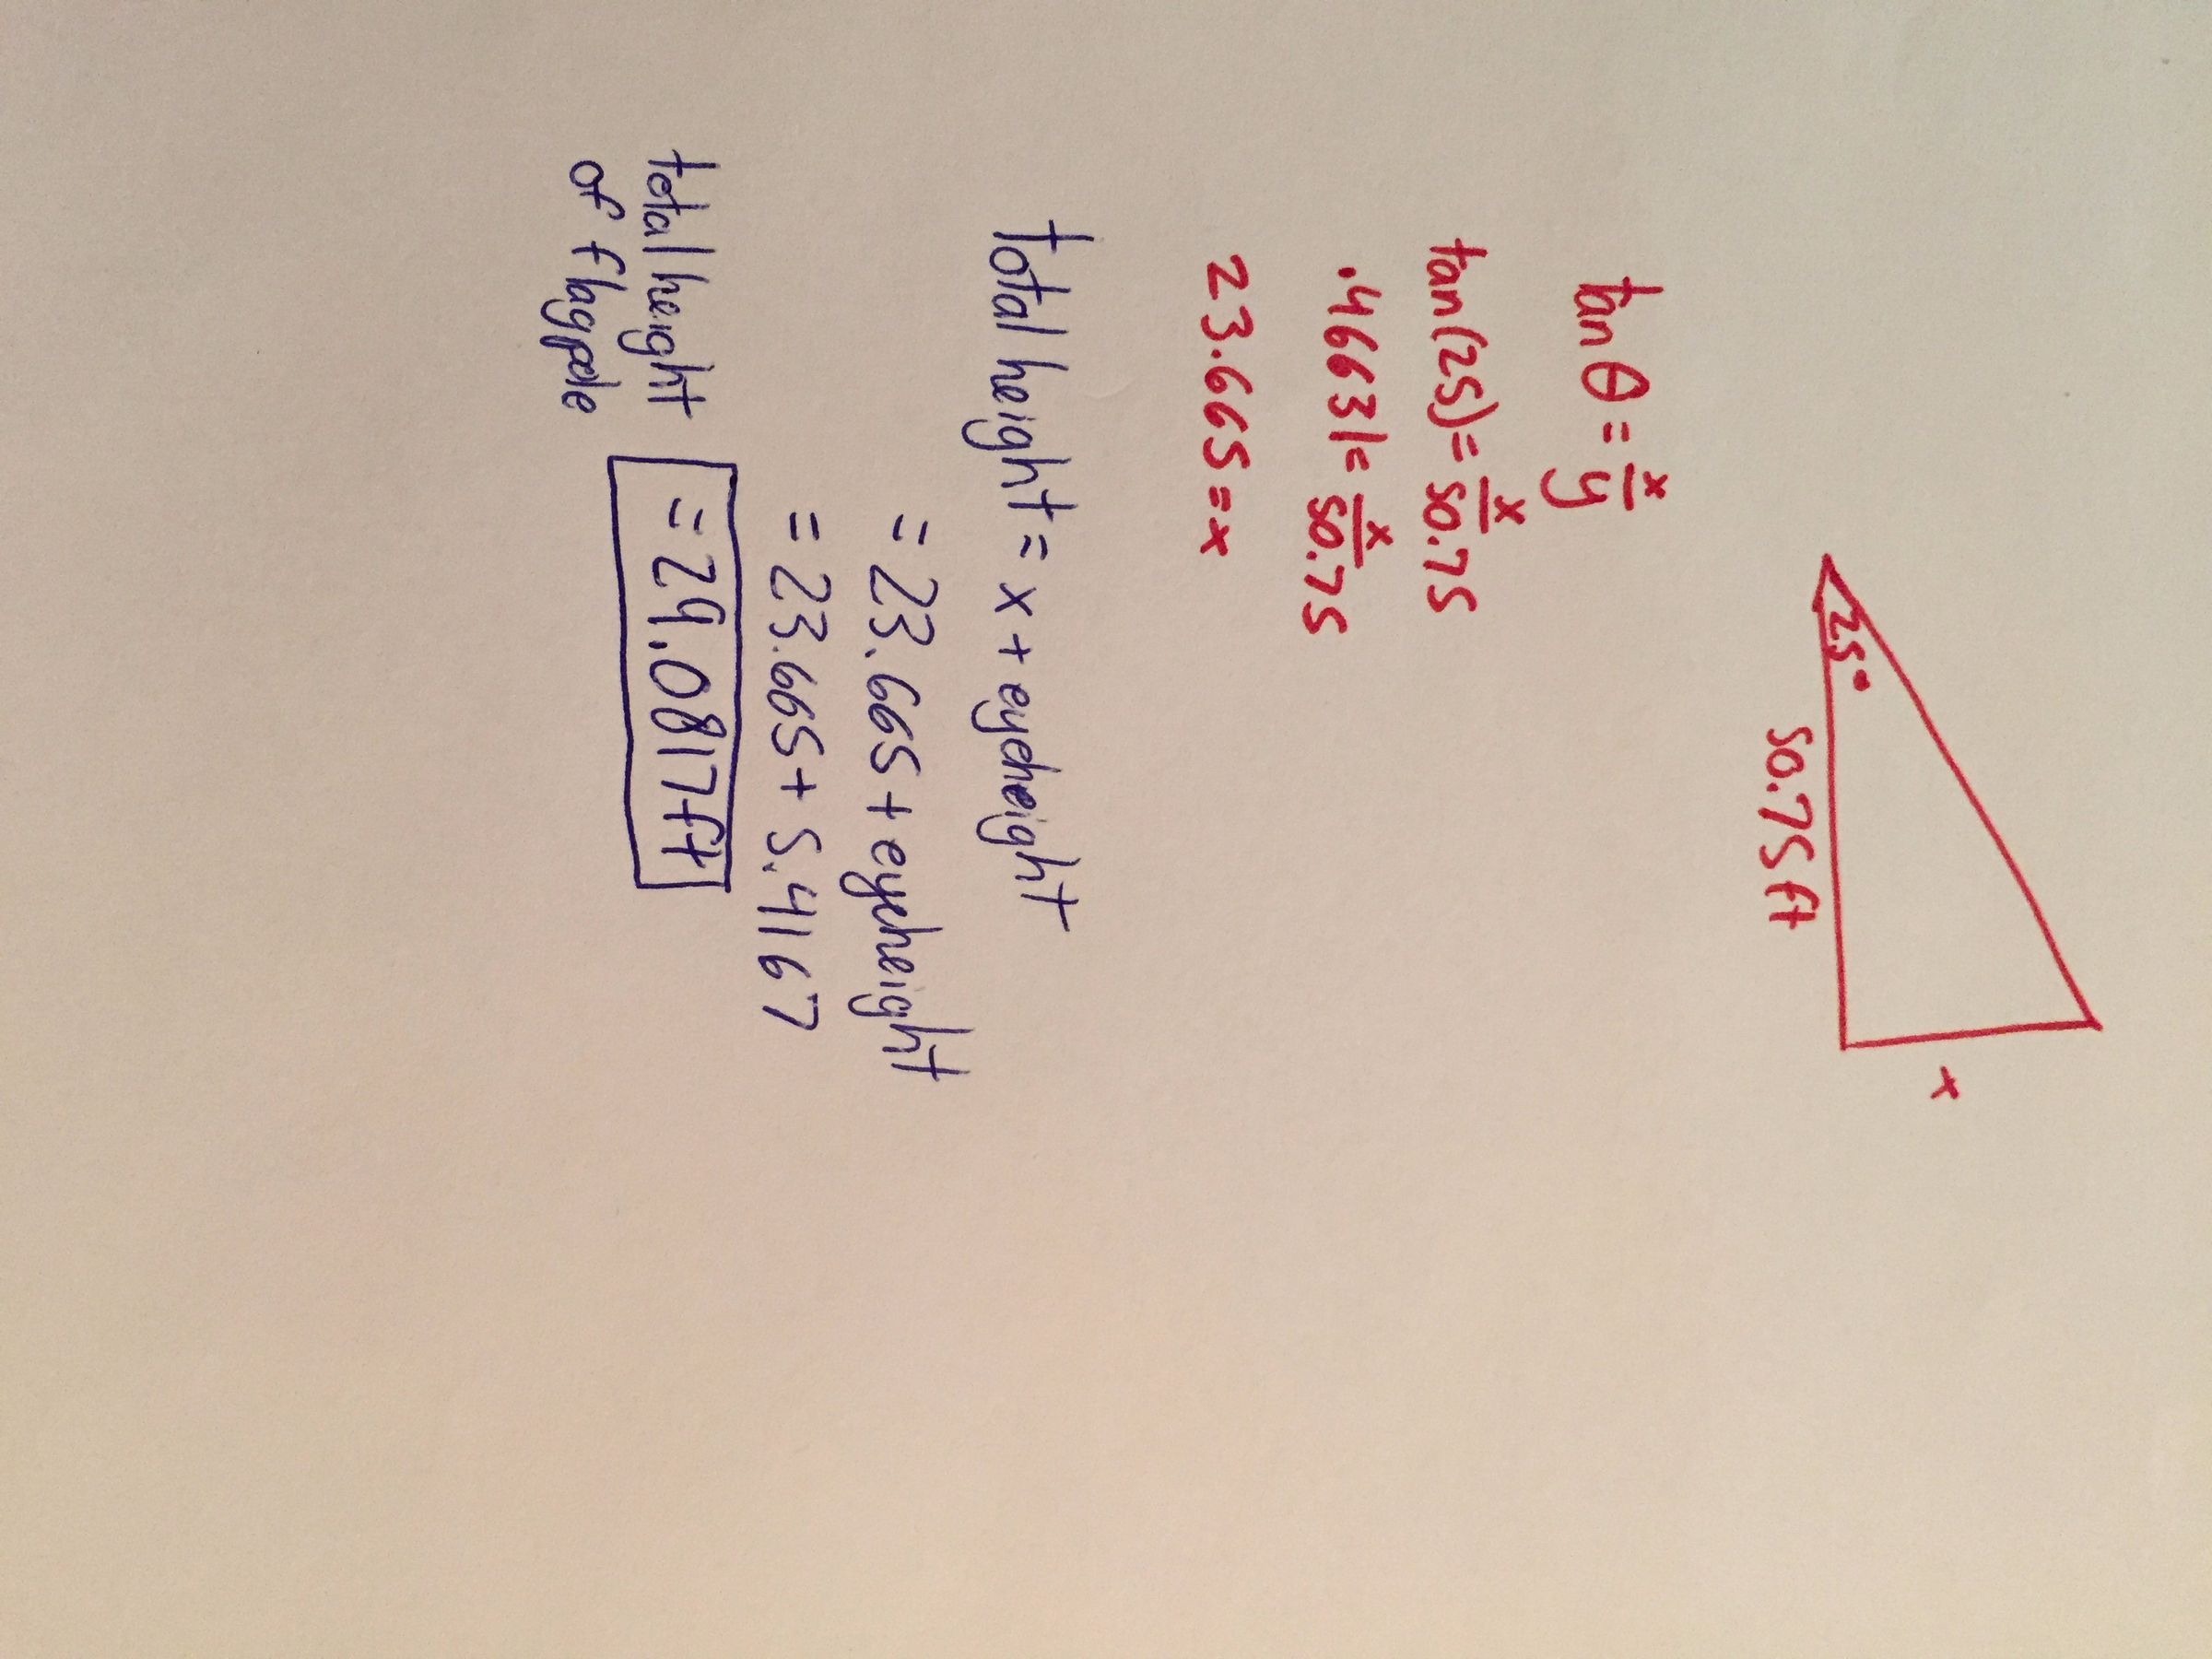 25°
50.75 ft
x
tan θ = x/y
tan(25) = x/50.75
.4663 = x/50.75
23.665 = x
total height = x + eyeheight
= 23.665 + eyeheight
= 23.665 + 5.4167
total height of flagpole = 29.0817 ft